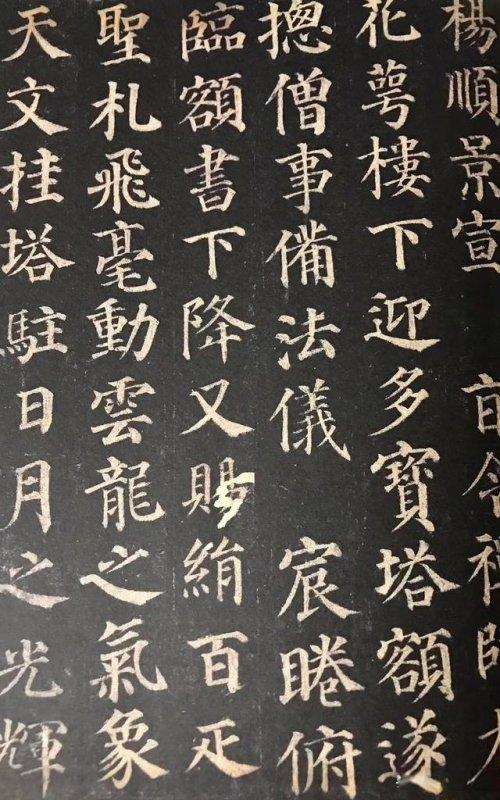 楊順景宣 旨令禪師
花萼樓下迎多寶塔額遂
摠僧事備法儀 宸睠俯
臨額書下降又賜絹百疋
聖札飛毫動雲龍之氣象
天文挂塔駐日月之光輝